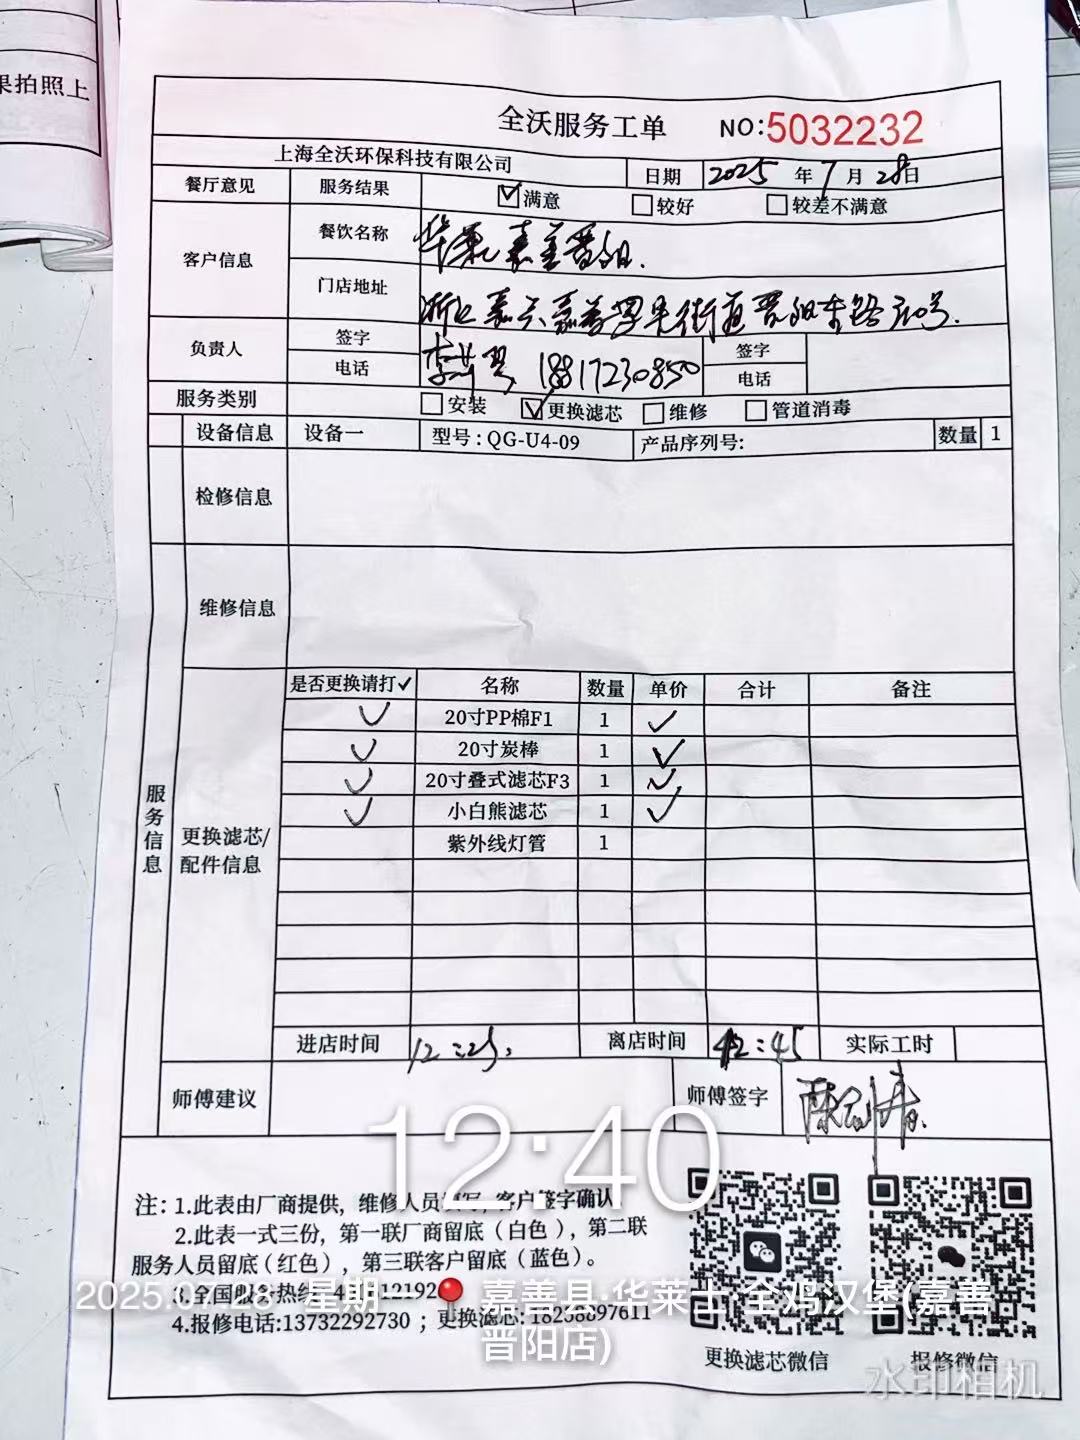 果拍照上
全沃服务工单 NO:5032232
上海全沃环保科技有限公司 日期 2025 年 7 月 28 日
餐厅意见 服务结果 ☑满意 □较好 □较差不满意
客户信息 餐饮名称 华莱士嘉善晋阳.
门店地址 浙江嘉兴嘉善 街道晋阳东路 号.
负责人 签字 李 签字
电话 18817230850 电话
服务类别 □安装 ☑更换滤芯 □维修 □管道消毒
设备信息 设备一 型号:QG-U4-09 产品序列号: 数量 1
检修信息
维修信息
服务信息
更换滤芯/配件信息
是否更换请打✓ 名称 数量 单价 合计 备注
✓ 20寸PP棉F1 1 ✓
✓ 20寸炭棒 1 ✓
✓ 20寸叠式滤芯F3 1 ✓
✓ 小白熊滤芯 1 ✓
紫外线灯管 1
进店时间 12:25. 离店时间 12:45 实际工时
师傅建议 师傅签字
12:40
注: 1.此表由厂商提供, 维修人员填写, 客户签字确认
2.此表一式三份, 第一联厂商留底(白色), 第二联
服务人员留底(红色), 第三联客户留底(蓝色)。
3.全国服务热线
4.报修电话:13732292730 ; 更换滤芯:18258897611
更换滤芯微信 报修微信
2025.07.28 星期 嘉善县·华莱士·全鸡汉堡(嘉善
晋阳店)
水印相机